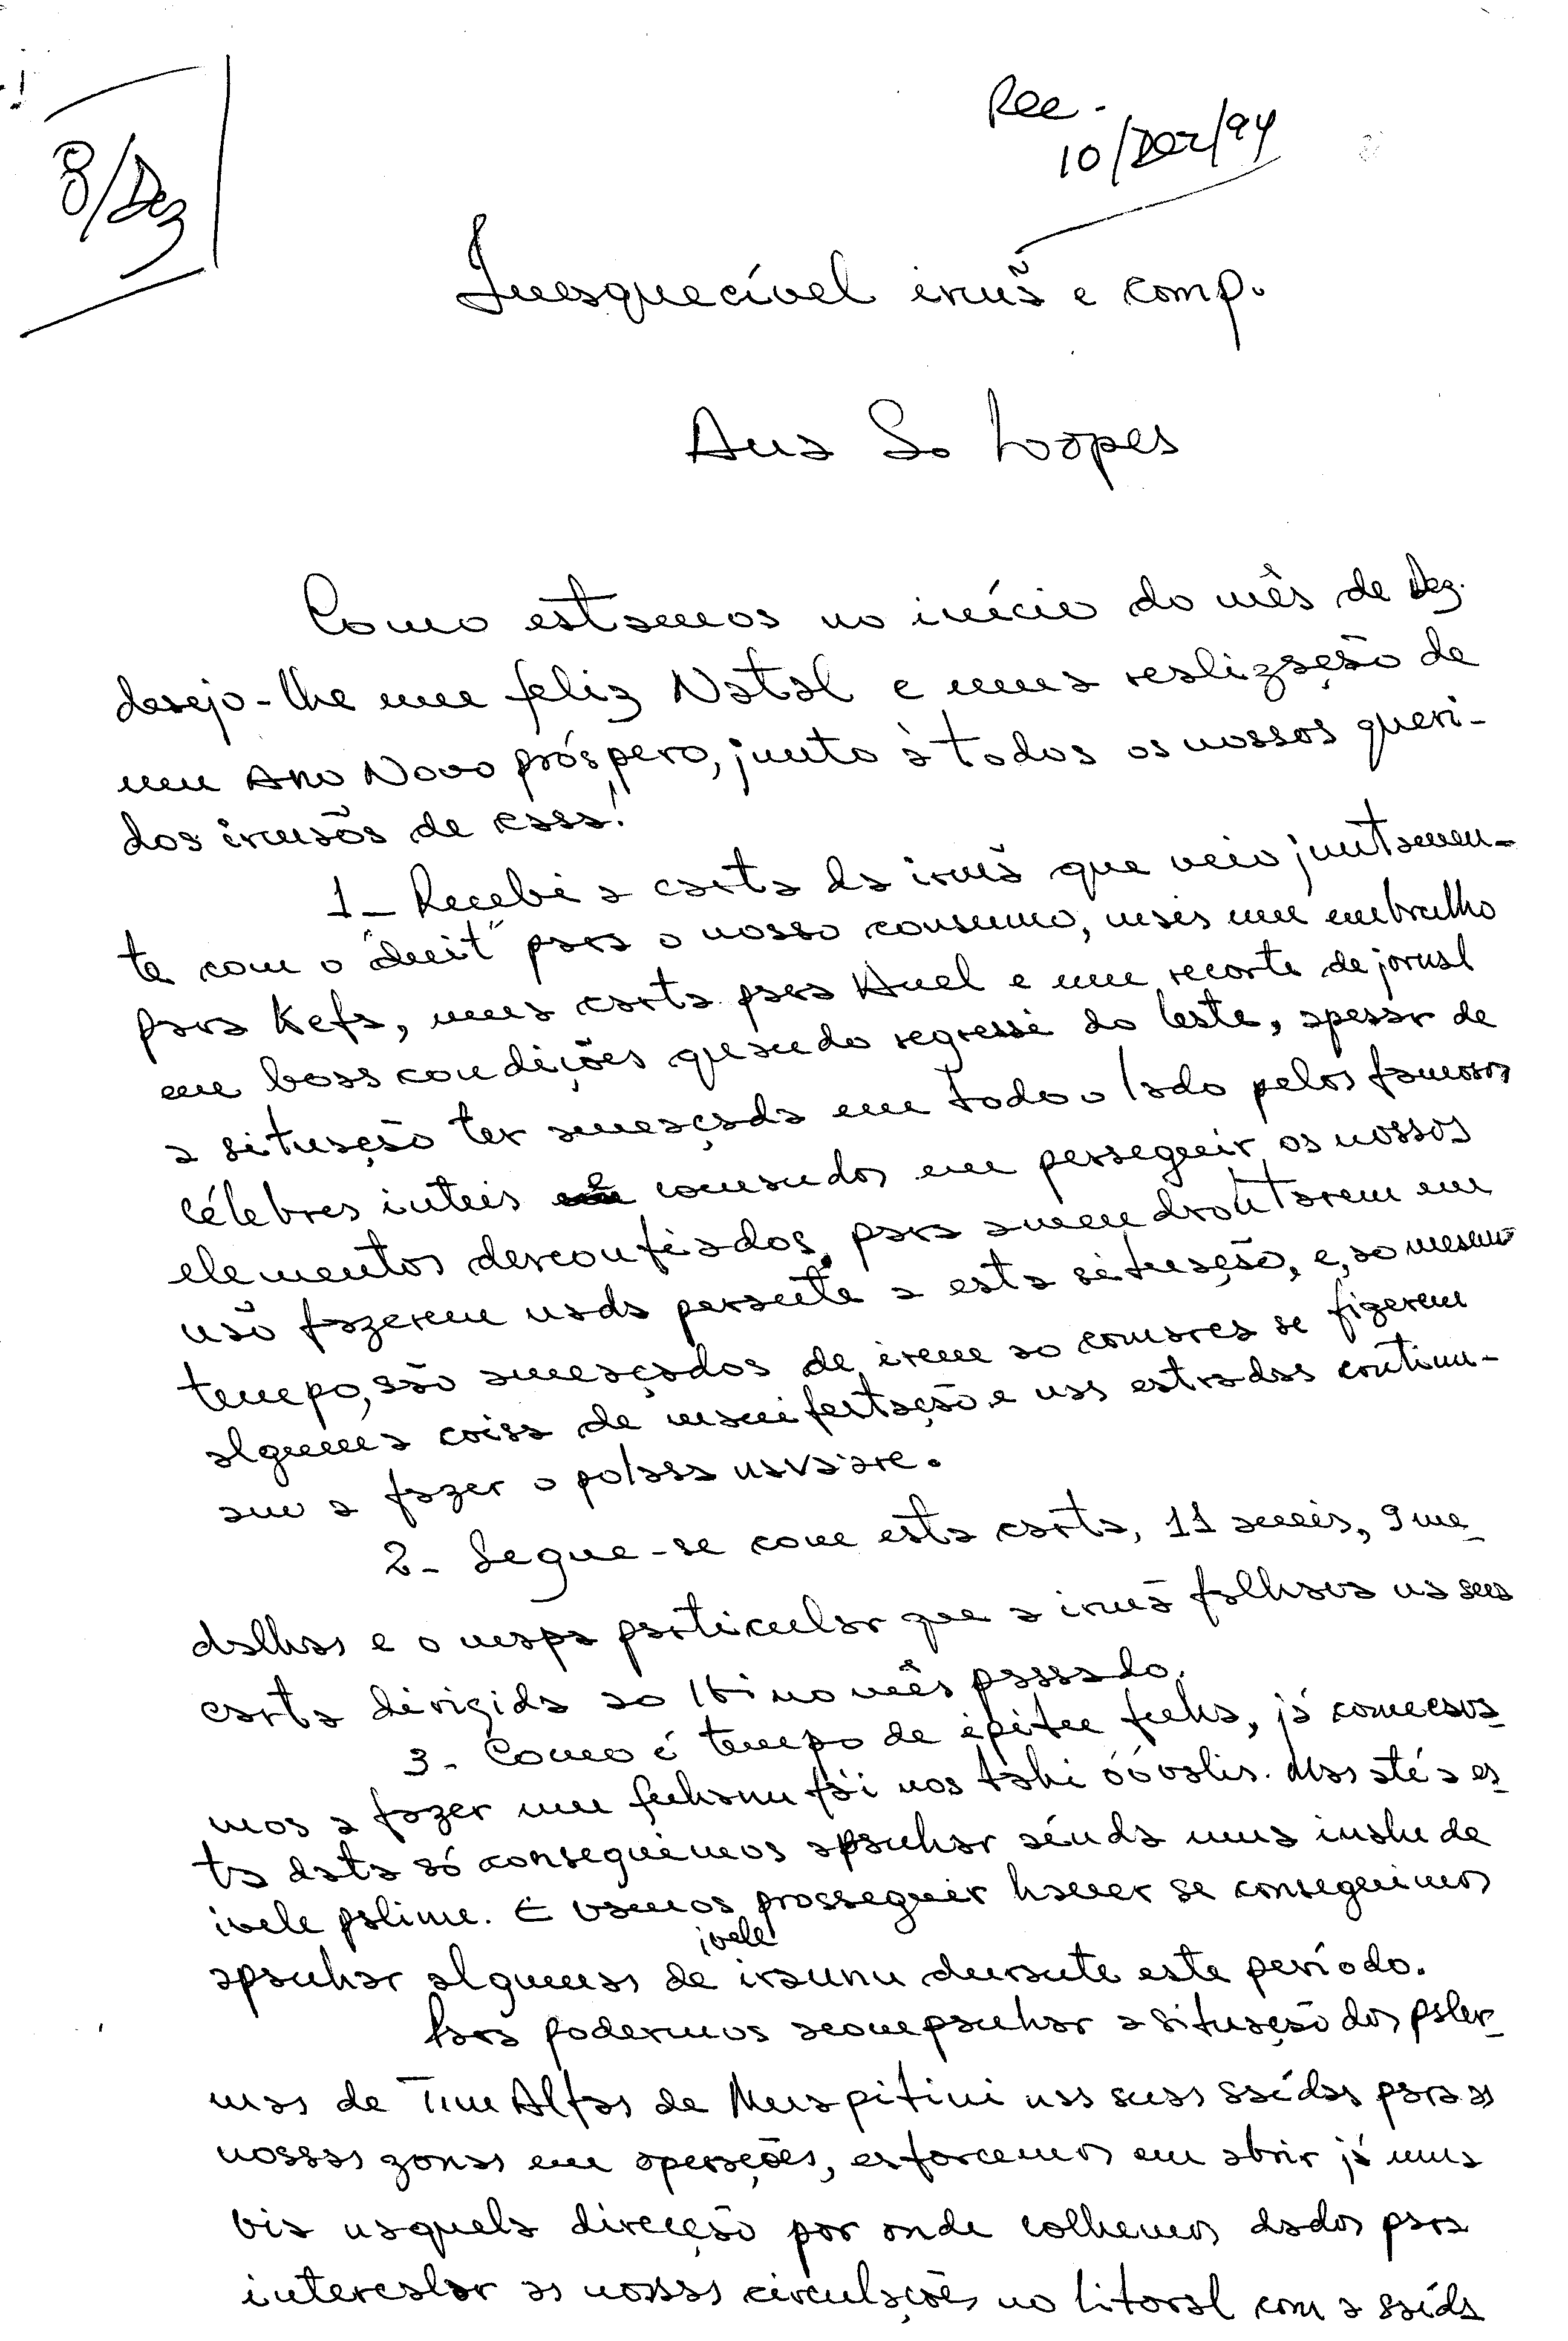 8/Dez
Rec -
10/Dez/94
Inesquecível irmã e comp.
Ana S. Loopes
Como estamos no início do mês de Dez.
desejo-lhe um feliz Natal e uma realização de
um Ano Novo próspero, junto à todos os nossos queri-
dos irmãos de casa!
1- Recebi a carta da irmã que veio juntamen-
te com o "duit" para o nosso consumo, mais um embrulho
para Kefa, uma carta para Anel e um recorte de jornal
em boas condições quando regressei do leste, apesar de
a situação ter ameaçada em todo o lado pelos famosos
célebres intuis comandos em perseguir os nossos
elementos desconfiados, para amendrontarem em
não fazerem nada perante a esta situação, e, ao mesmo
tempo, são ameaçados de irem ao comarca se fizerem
alguma coisa de manifestação e nas estradas continu-
am a fazer o polasa navaare.
2- Segue-se com esta carta, 11 amais, 9 me-
dalhas e o mapa particular que a irmã falhava na sua
carta dirigida ao Iti no mês passado.
3- Como é tempo de ipitu fuha, já começa-
mos a fazer um fuhanu fái nos tahi óóvalis. Mas até a es-
ta data só conseguimos apanhar ainda uma inahu de
ivele palimu. E vamos prosseguir haver se conseguimos
ivele
apanhar algumas de iraunu durante este período.
Para podermos acompanhar a situação dos paler-
mas de Tim Alfas de Muapitini nas suas saídas para as
nossas zonas em operações, esforcemos em abrir já uma
via naquela direcção por onde colhemos dados para
intercalar as nossas circulações no litoral com a saída